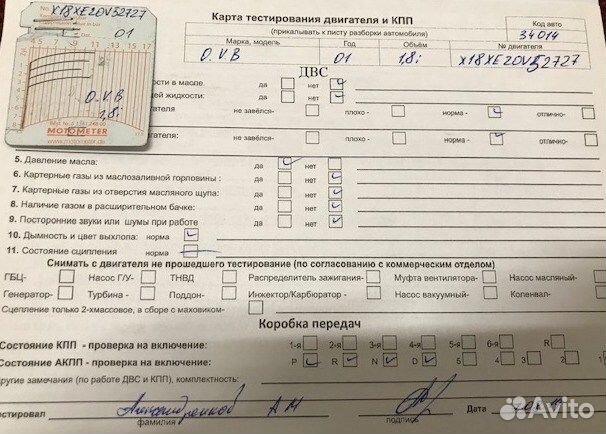 No.
X18XE20V32727
01
4 5 7 9 11 13 15 17
O.V.B
1,8i
MOTOMETER
www.motometer.de
Карта тестирования двигателя и КПП
(прикалывать к листу разборки автомобиля)
Код авто
34014
Марка, модель Год Объём № двигателя
O.V.B 01 1,8i X18XE20V32727
ДВС
ости в масле. да нет
щей жидкости: да нет
гателя не завёлся- плохо - норма - отлично-
гателя: не завёлся- плохо - норма - отлично-
5. Давление масла: да нет
6. Картерные газы из маслозаливной горловины : да нет
7. Картерные газы из отверстия масляного щупа: да нет
8. Наличие газом в расширительном бачке: да нет
9. Посторонние звуки или шумы при работе да нет
10. Дымность и цвет выхлопа: норма
11. Состояние сцепления норма
Снимать с двигателя не прошедшего тестирование (по согласованию с коммерческим отделом)
ГБЦ- Насос Г/У- ТНВД Распределитель зажигания- Муфта вентилятора- Насос масляный-
Генератор- Турбина - Поддон- Инжектор/Карбюратор - Насос вакуумный- Коленвал-
Сцепление только 2-хмассовое, а сборе с маховиком-
Коробка передач
Состояние КПП - проверка на включение: 1-я 2-я 3-я 4-я 5-я 6-я R
Состояние АКПП - проверка на включение: P R N D 5 4 3 2 1
другие замечания (по работе ДВС и КПП), комплектность:
естировал А М Дата
фамилия подпись
Avito